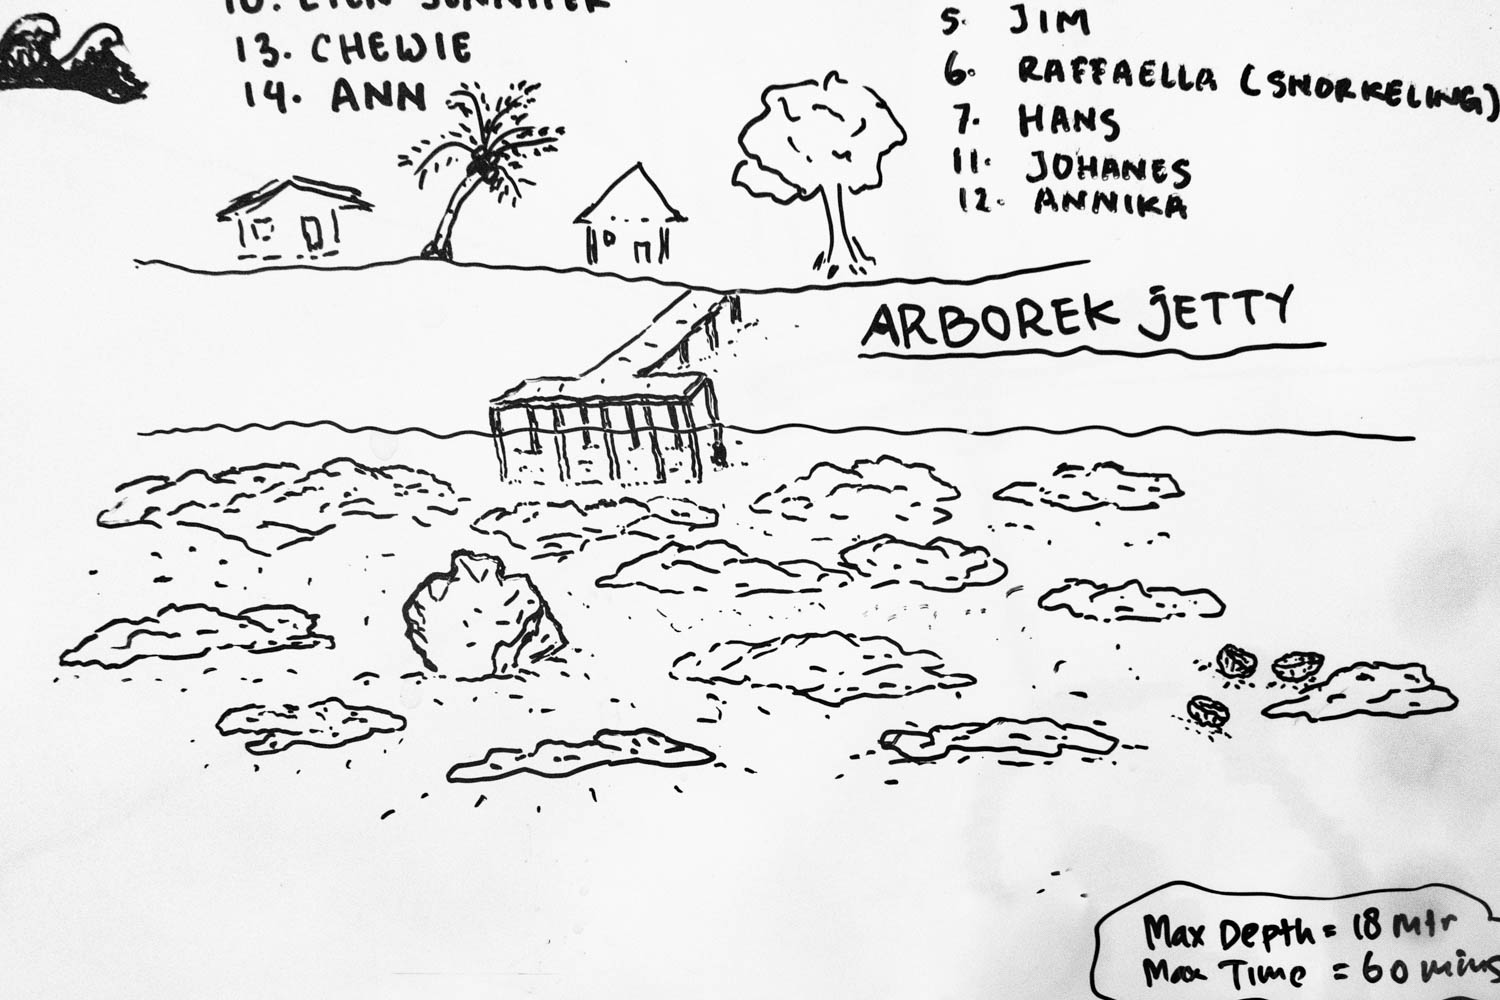 13. CHEWIE
14. ANN
5. JIM
6. RAFFAELLA (SNORKELING)
7. HANS
11. JOHANES
12. ANNIKA
ARBOREK JETTY
Max Depth = 18 mtr
Max Time = 60 mins